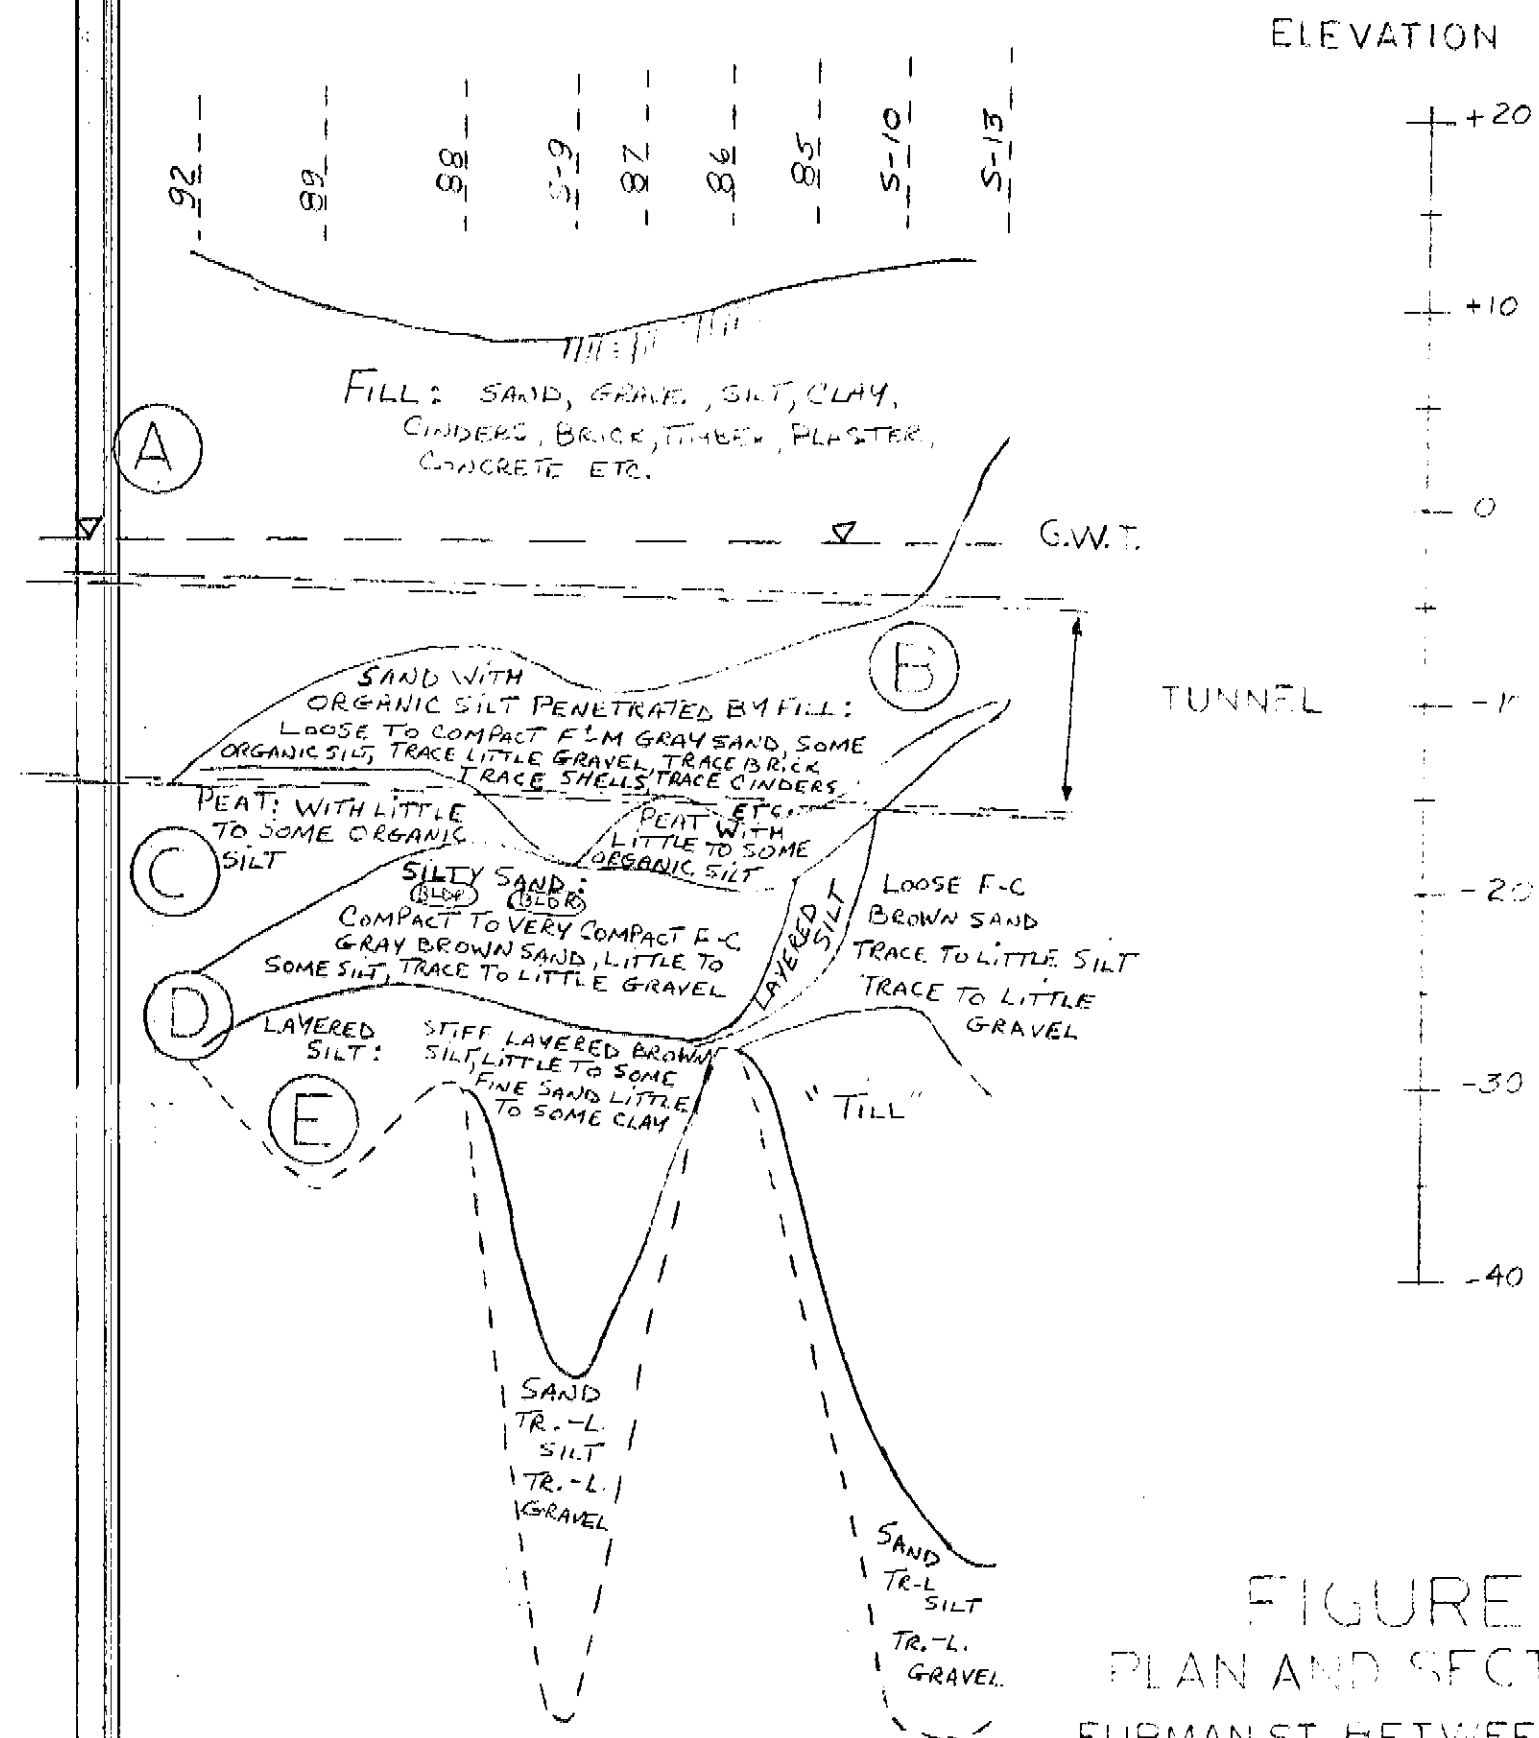 ELEVATION
92
89
88
S-9
87
86
85
S-10
S-13
+20
+10
0
-20
-30
-40
FILL: SAND, GRAVE , SILT, CLAY,
CINDERS, BRICK, TIMBER, PLASTER,
CONCRETE ETC.
A
G.W.T.
B
TUNNEL
SAND WITH
ORGANIC SILT PENETRATED BY FILL:
LOOSE TO COMPACT F-M GRAY SAND, SOME
ORGANIC SILT, TRACE LITTLE GRAVEL, TRACE BRICK
TRACE SHELLS, TRACE CINDERS
ETC.
PEAT: WITH LITTLE
TO SOME ORGANIC
SILT
C
PEAT WITH
LITTLE TO SOME
ORGANIC SILT
SILTY SAND:
BLDR BLDR
COMPACT TO VERY COMPACT F-C
GRAY BROWN SAND, LITTLE TO
SOME SILT, TRACE TO LITTLE GRAVEL
LAYERED
SILT
LOOSE F-C
BROWN SAND
TRACE TO LITTLE SILT
TRACE TO LITTLE
GRAVEL
D
LAYERED
SILT:
STIFF LAYERED BROWN
SILT, LITTLE TO SOME
FINE SAND LITTLE
TO SOME CLAY
E
"TILL"
SAND
TR.-L.
SILT
TR.-L.
GRAVEL
SAND
TR-L
SILT
TR.-L.
GRAVEL
FIGURE
PLAN AND SECT
FURMAN ST. BETWEE